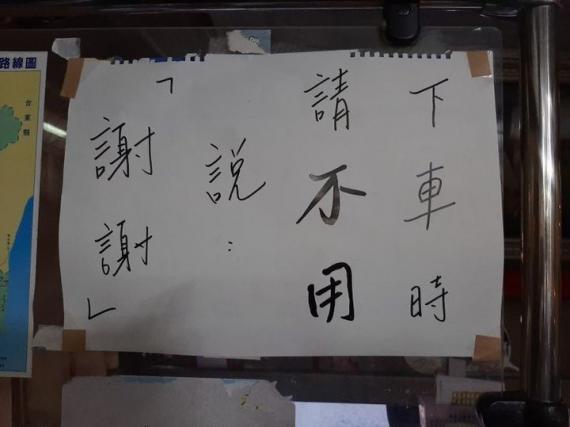 下車時
請不用
說:
「謝謝」
路線圖